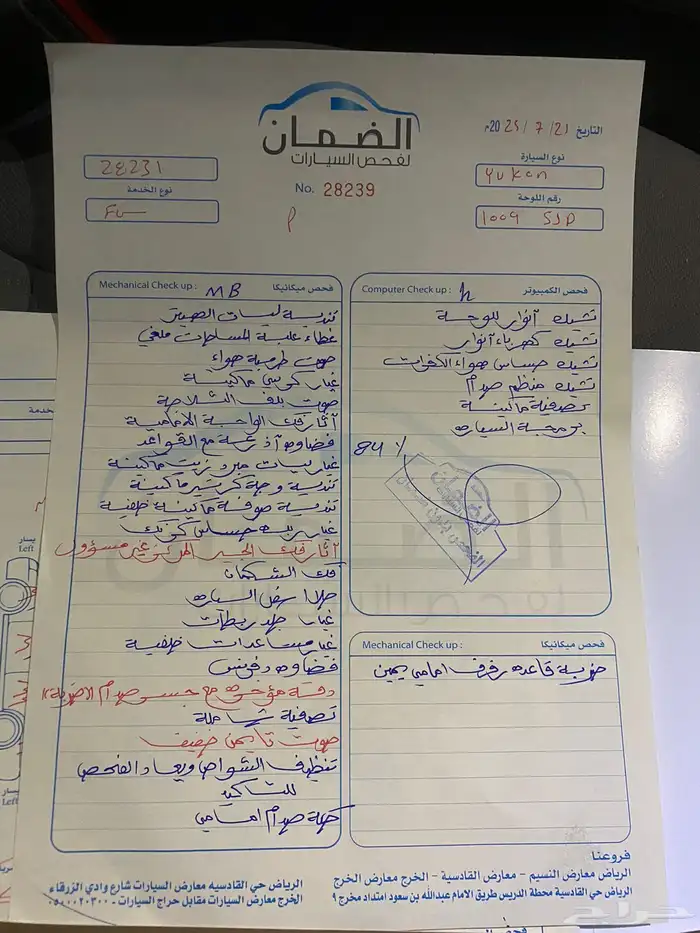 الضمان
لفحص السيارات
التاريخ 21 / 7 / 2025م
نوع السيارة
Yukon
رقم اللوحة
1009 SJD
28231
نوع الخدمة
Fu
No. 28239
Mechanical Check up : فحص ميكانيكا
MB
تنديـة لبسات الصبابـ
غطاء علبة المساحات ملغي
صوت طرمبة هواء
غيار كرسي ماكينة
صوت بلف الثلاجة
آثار فك الواجهة الامامية
فضاوه أذرعة مع القواعد
غيار لبسات مبرد زيت ماكينة
تنديـة وجه كرتير ماكينة
تنديـة صوفة ماكينة خلفية
غيار ربله حساس كرنك
آثار فك الجير المركز غير مسؤول
فك الشكمان
حلا سفل السياره
غيار جلد ربطات
غيار مساعدات خلفية
فضاوه دفرنس
دقه مؤخره مع جسر صدام
تصفية شاملة
صوت تايمن خفيف
تنظيف الشواص ويعاد الفحص
للتأكيد
كهلة صدام امامي
Computer Check up : فحص الكمبيوتر
تشيك أنوار للوحة
تشيك كهرباء أنوار
تشيك حساس هواء الكفرات
تشيك منظم صدام
تصفية ماكينة
برمجة السياره
84 %
Mechanical Check up : فحص ميكانيكا
ضربة قاعده رفرف امامي يمين
فروعنا
الرياض معارض النسيم - معارض القادسية - الخرج معارض الخرج
الرياض حي القادسية محطة الدريس طريق الامام عبدالله بن سعود امتداد مخرج ٩
الرياض حي القادسيه معارض السيارات شارع وادي الزرقاء
الخرج معارض السيارات مقابل حراج السيارات - ٠٥٠٠٠٢٠٣٠٠
يسار
Left
حراج